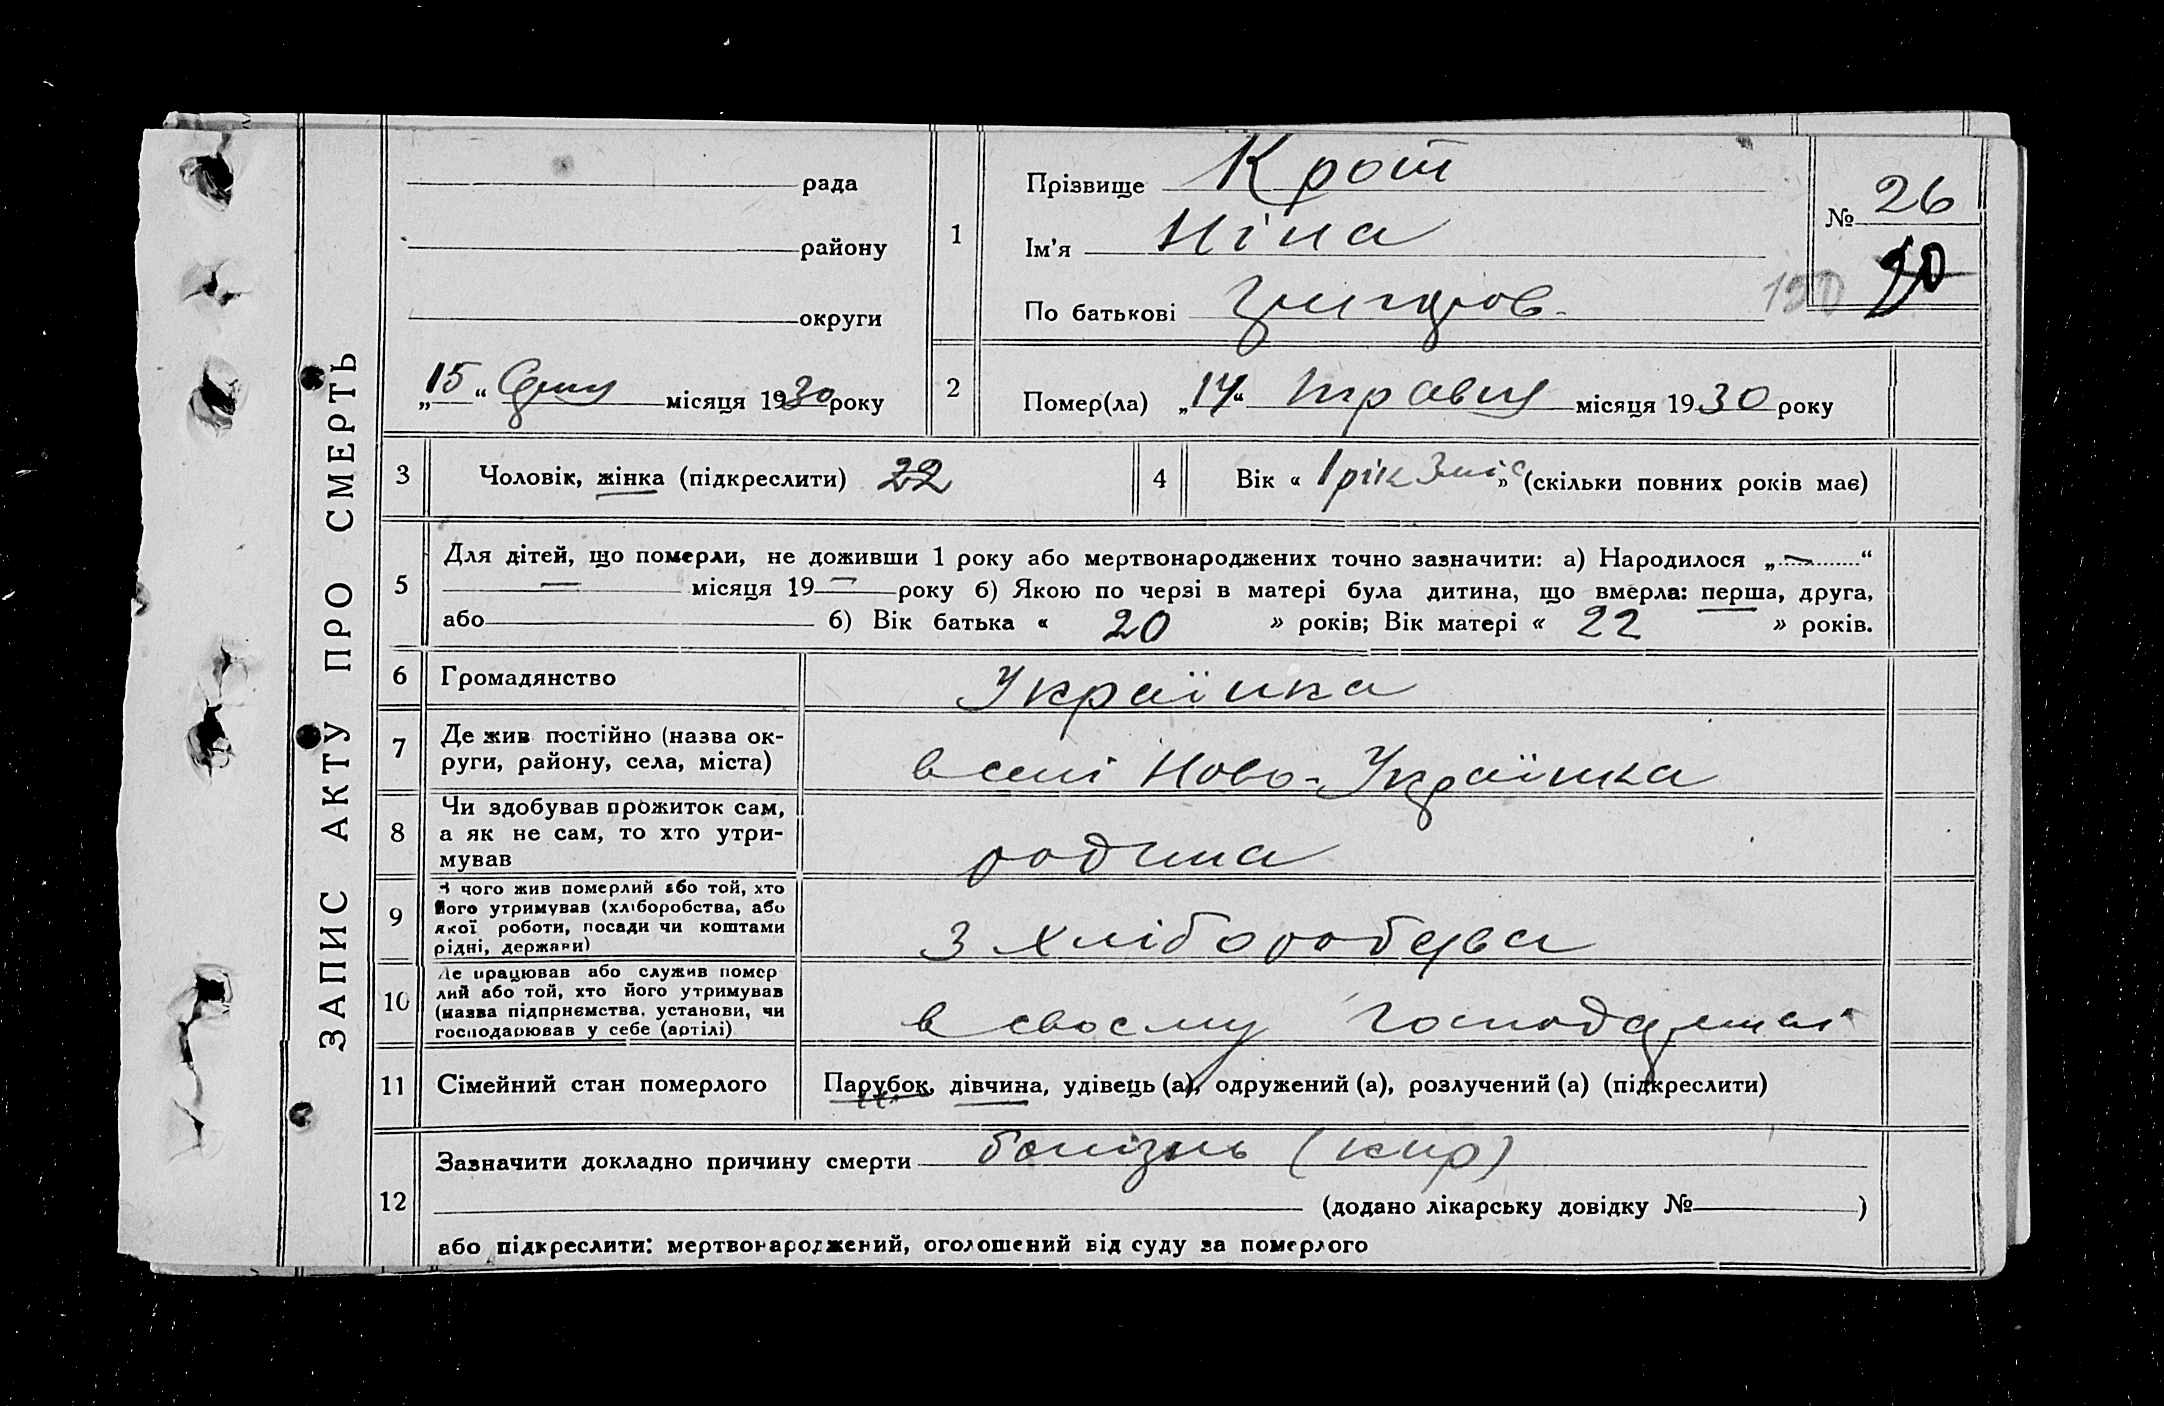 ЗАПИС АКТУ ПРО СМЕРТЬ
рада
району
округи
„15“ місяця 1930 року
1
Прізвище Крот
Ім'я Ніна
По батькові Григоров.
№ 26
150
2
Помер(ла) „14“ травня місяця 1930 року
3
Чоловік, жінка (підкреслити) 22
4
Вік « 1 рік 3 міс » (скільки повних років має)
5
Для дітей, що померли, не доживши 1 року або мертвонароджених точно зазначити: а) Народилося „ — “
— місяця 19 — року б) Якою по черзі в матері була дитина, що вмерла: перша, друга,
або б) Вік батька « 20 » років; Вік матері « 22 » років.
6
Громадянство
Українка
7
Де жив постійно (назва ок-
руги, району, села, міста)
в селі Ново-Українка
8
Чи здобував прожиток сам,
а як не сам, то хто утри-
мував
родина
9
З чого жив померлий або той, хто
його утримував (хліборобства, або
якої роботи, посади чи коштами
рідні, держави)
з хліборобства
10
Де працював або служив помер
лий або той, хто його утримував
(назва підприємства, установи, чи
господарював у себе (артілі)
в своєму
11
Сімейний стан померлого
Парубок, дівчина, удівець (а), одружений (а), розлучений (а) (підкреслити)
12
Зазначити докладно причину смерти болізнь (кир)
(додано лікарську довідку № )
або підкреслити: мертвонароджений, оголошений від суду за померлого